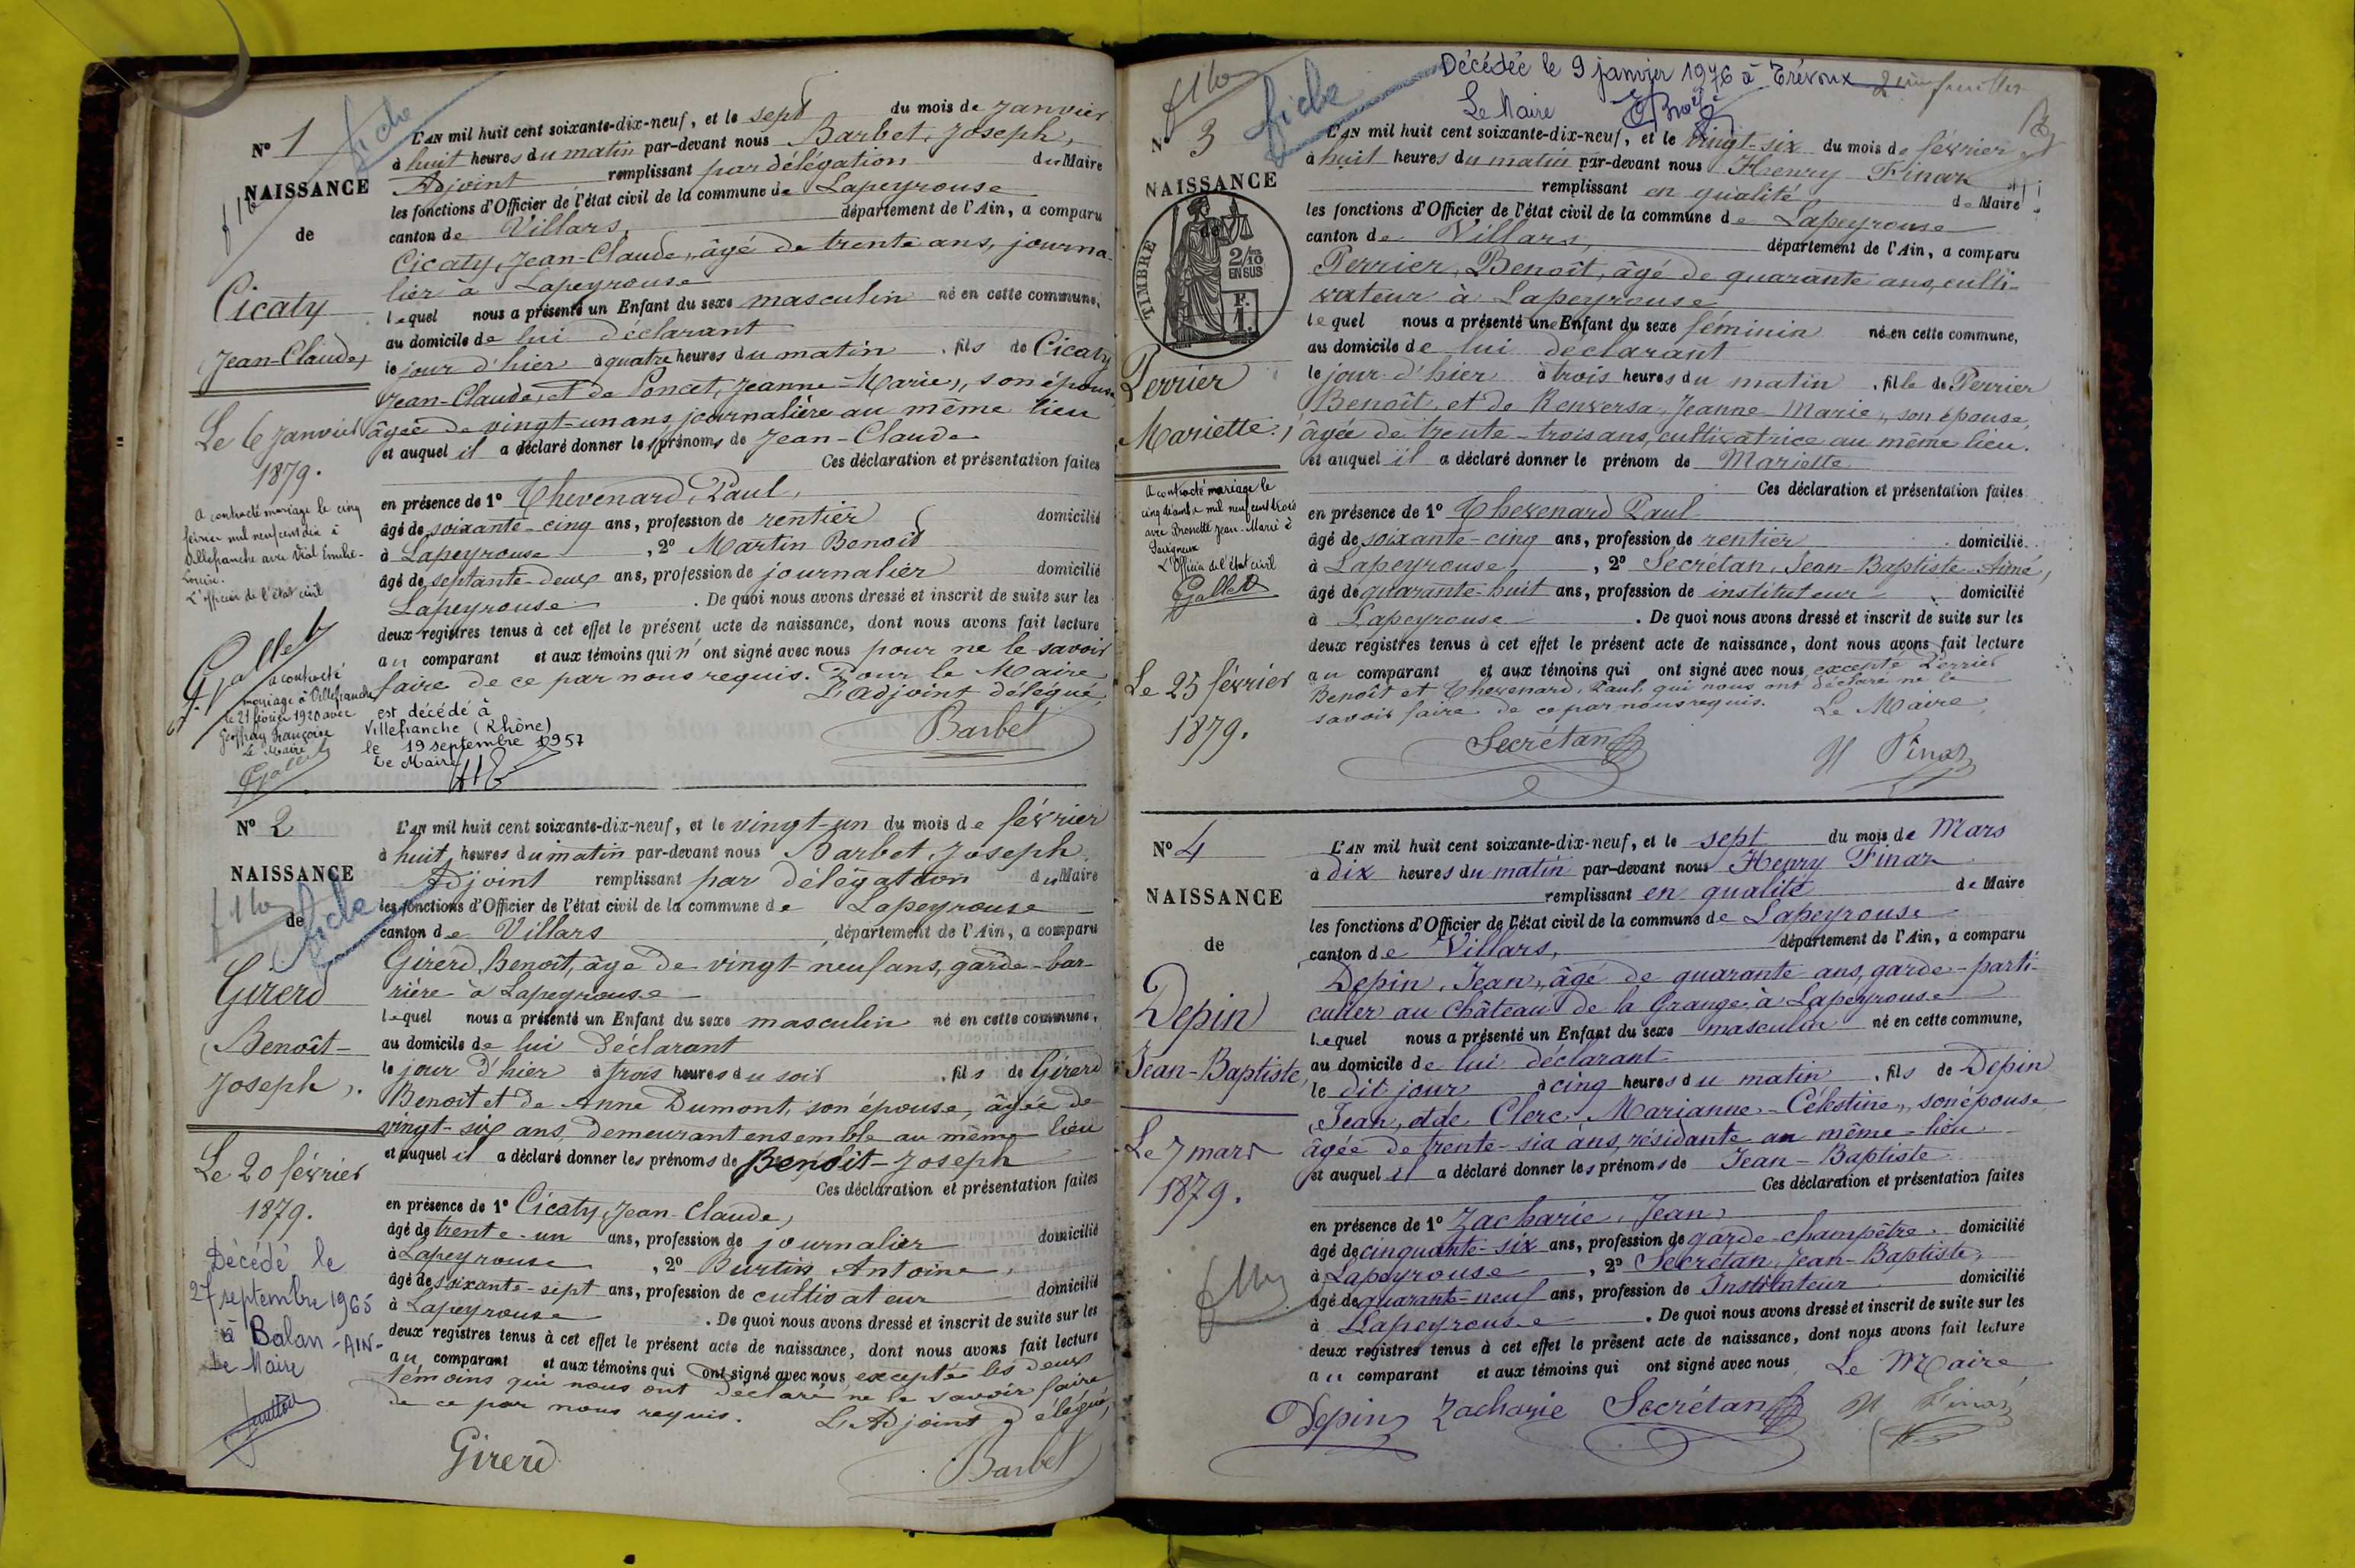 fiche
N° 1
NAISSANCE
de
Cicaty
Jean-Claude,
Le 6 janvier
1879.
a contracté mariage le cinq
février mil neuf cent dix à
Villefranche avec Vial Émilie-
Louise.
L'officier de l'état civil
Gallet
a contracté
mariage à Villefranche
le 21 février 1920 avec
Geoffray Françoise
Le Maire
L'AN mil huit cent soixante-dix-neuf, et le sept du mois de janvier
à huit heures du matin par-devant nous Barbet, Joseph,
Adjoint remplissant par délégation du Maire
les fonctions d'Officier de l'état civil de la commune de Lapeyrouse
canton de Villars, département de l'Ain, a comparu
Cicaty, Jean-Claude, âgé de trente ans, journa-
lier à Lapeyrouse
lequel nous a présenté un Enfant du sexe masculin né en cette commune,
au domicile de lui déclarant
le jour d'hier à quatre heures du matin, fils de Cicaty
Jean-Claude, et de Poncet, Jeanne-Marie, son épouse
âgée de vingt-un ans, journalière au même lieu
et auquel il a déclaré donner les prénoms de Jean-Claude
Ces déclaration et présentation faites
en présence de 1° Thevenard, Paul,
âgé de soixante-cinq ans, profession de rentier domicilié
à Lapeyrouse, 2° Martin Benoît
âgé de septante-deux ans, profession de journalier domicilié
Lapeyrouse. De quoi nous avons dressé et inscrit de suite sur les
deux registres tenus à cet effet le présent acte de naissance, dont nous avons fait lecture
au comparant et aux témoins qui n'ont signé avec nous pour ne le savoir
faire de ce par nous requis. Pour le Maire
L'adjoint délégué,
Barbet
est décédé à
Villefranche (Rhône)
le 19 septembre 1957
Le Maire
N° 2
NAISSANCE
de
fiche
Girerd
Benoît-
Joseph,
Le 20 février
1879.
Décédé le
27 septembre 1965
à Balan -AIN-
Le Maire
L'AN mil huit cent soixante-dix-neuf, et le vingt-un du mois de février
à huit heures du matin par-devant nous Barbet, Joseph
Adjoint remplissant par délégation du Maire
les fonctions d'Officier de l'état civil de la commune de Lapeyrouse
canton de Villars département de l'Ain, a comparu
Girerd, Benoît, âgé de vingt-neuf ans, garde-bar-
rière à Lapeyrouse
lequel nous a présenté un Enfant du sexe masculin né en cette commune,
au domicile de lui déclarant
le jour d'hier à trois heures du soir, fils de Girerd
Benoît et de Anne Dumont, son épouse, âgée de
vingt-six ans, demeurant ensemble au même lieu
et auquel il a déclaré donner les prénoms de Benoît-Joseph
Ces déclaration et présentation faites
en présence de 1° Cicaty, Jean-Claude,
âgé de trente-un ans, profession de journalier domicilié
à Lapeyrouse, 2° Burtin Antoine,
âgé de soixante-sept ans, profession de cultivateur domicilié
à Lapeyrouse. De quoi nous avons dressé et inscrit de suite sur les
deux registres tenus à cet effet le présent acte de naissance, dont nous avons fait lecture
au comparant et aux témoins qui ont signé avec nous exceptés les deux
témoins qui nous ont déclaré ne le savoir faire
de ce par nous requis. L'Adjoint délégué,
Girerd Barbet
Décédée le 9 janvier 1976 à Trévoux
Le Maire
fiche
N° 3
NAISSANCE
de
TIMBRE
2/10
EN SUS
1 F.
Perrier
Mariette,
a contracté mariage le
cinq décembre mil neuf cent trois
avec Brossette Jean-Marie à
Savigneux
L'officier de l'état civil
Gallet
Le 25 février
1879.
L'AN mil huit cent soixante-dix-neuf, et le vingt-six du mois de février
à huit heures du matin par-devant nous Henry Finaz
remplissant en qualité de Maire
les fonctions d'Officier de l'état civil de la commune de Lapeyrouse
canton de Villars, département de l'Ain, a comparu
Perrier, Benoît, âgé de quarante ans, culti-
vateur à Lapeyrouse
lequel nous a présenté une Enfant du sexe féminin née en cette commune,
au domicile de lui déclarant
le jour d'hier à trois heures du matin, fille de Perrier
Benoît, et de Renversa, Jeanne-Marie, son épouse,
âgée de trente-trois ans, cultivatrice au même lieu.
et auquel il a déclaré donner le prénom de Mariette
Ces déclaration et présentation faites
en présence de 1° Thevenard Paul
âgé de soixante-cinq ans, profession de rentier domicilié
à Lapeyrouse, 2° Secrétan, Jean-Baptiste-Aimé,
âgé de quarante-huit ans, profession de instituteur domicilié
à Lapeyrouse. De quoi nous avons dressé et inscrit de suite sur les
deux registres tenus à cet effet le présent acte de naissance, dont nous avons fait lecture
au comparant et aux témoins qui ont signé avec nous excepté Perrier
Benoît et Thevenard, Paul, qui nous ont déclaré ne le
savoir faire de ce par nous requis. Le Maire,
Secrétan H Finaz
N° 4
NAISSANCE
de
Depin
Jean-Baptiste,
Le 7 mars
1879.
L'AN mil huit cent soixante-dix-neuf, et le sept du mois de Mars
à dix heures du matin par-devant nous Henry Finaz
remplissant en qualité de Maire
les fonctions d'Officier de l'état civil de la commune de Lapeyrouse
canton de Villars, département de l'Ain, a comparu
Depin, Jean, âgé de quarante ans, garde-parti-
culier au Château de la Grange à Lapeyrouse
lequel nous a présenté un Enfant du sexe masculin né en cette commune,
au domicile de lui déclarant
le dit jour à cinq heures du matin, fils de Depin
Jean, et de Clerc, Marianne-Célestine, son épouse
âgée de trente-six ans, résidante au même-lieu
et auquel il a déclaré donner les prénoms de Jean-Baptiste
Ces déclaration et présentation faites
en présence de 1° Zacharie, Jean,
âgé de cinquante-six ans, profession de garde-champêtre domicilié
à Lapeyrouse, 2° Secrétan, Jean-Baptiste,
âgé de quarante-neuf ans, profession de Instituteur domicilié
à Lapeyrouse. De quoi nous avons dressé et inscrit de suite sur les
deux registres tenus à cet effet le présent acte de naissance, dont nous avons fait lecture
au comparant et aux témoins qui ont signé avec nous Le Maire
Depin Zacharie Secrétan H Finaz